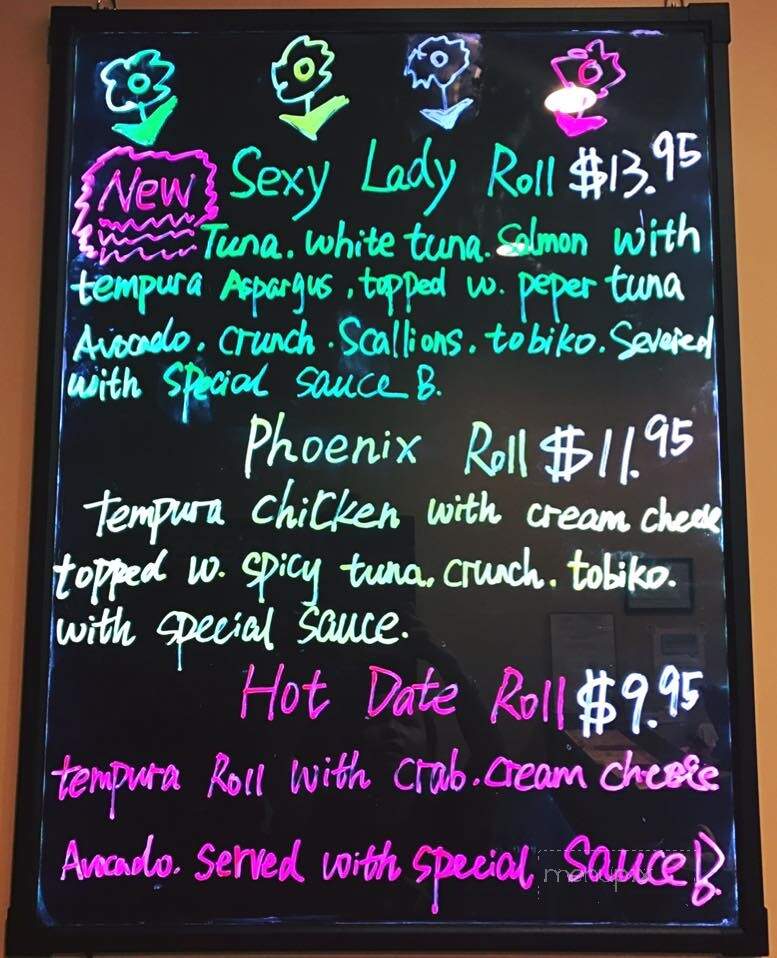 New Sexy Lady Roll $13.95
Tuna. white tuna. Salmon with
tempura Aspargus. topped w. peper tuna
Avocado. crunch. Scallions. tobiko. Severed
with special sauce B.
Phoenix Roll $11.95
tempura chicken with cream cheese
topped w. spicy tuna. crunch. tobiko.
with special sauce.
Hot Date Roll $9.95
tempura Roll with crab. cream cheese
Avocado. served with special sauce B.
menupix